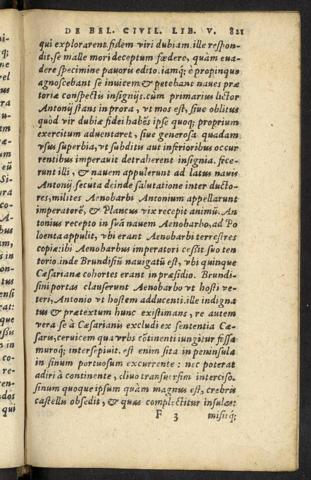 DE BEL. CIVIL. LIB. V. 821
qui explorarent fidem viri dubiam. ille respon-
dit, se malle mori deceptum fœdere, quàm eua-
dere specimine pauoris edito. iamq; è propinquo
agnoscebant se inuicem & petebant naues præ
toriæ conspectis insignijs. cùm primarius lictor
Antonij stans in prora, vt mos est, siue oblitus
quòd vir dubiæ fidei habẽs ipse quoq; proprium
exercitum aduentaret, siue generosa quadam
vsus superbia, vt subditis aut inferioribus occur
rentibus imperauit detraherent insignia. fece-
runt illi, & nauem appulerunt ad latus nauis
Antonij secuta deinde salutatione inter ducto-
res, milites Aenobarbi Antonium appellarunt
imperatorẽ, & Plancus vix recepit animũ. An
tonius recepto in suã nauem Aenobarbo, ad Pa
loenta appulit, vbi erant Aenobarbi terrestres
copiæ: ibi Aenobarbus imperatori cessit suo ten
torio. inde Brundisiũ nauigatũ est, vbi quinque
Cæsarianæ cohortes erant in præsidio. Brundi-
sini portas clauserunt Aenobarbo vt hosti ve-
teri, Antonio vt hostem adducenti. ille indigna
tus & prætextum hunc existimans, re autem
vera se à Cæsarianis excludi ex sententia Cæ-
saris, ceruicem qua vrbs cõtinenti iungitur fossa
muroq; intersepiuit. est enim sita in peninsula
in sinum portuosum excurrente: nec poterat
adiri à continente, cliuo transuersim interciso.
sinum quoque ipsum quàm magnus est, crebris
castellis obsedit, & quas complectitur insulas:
F 3 misitq;